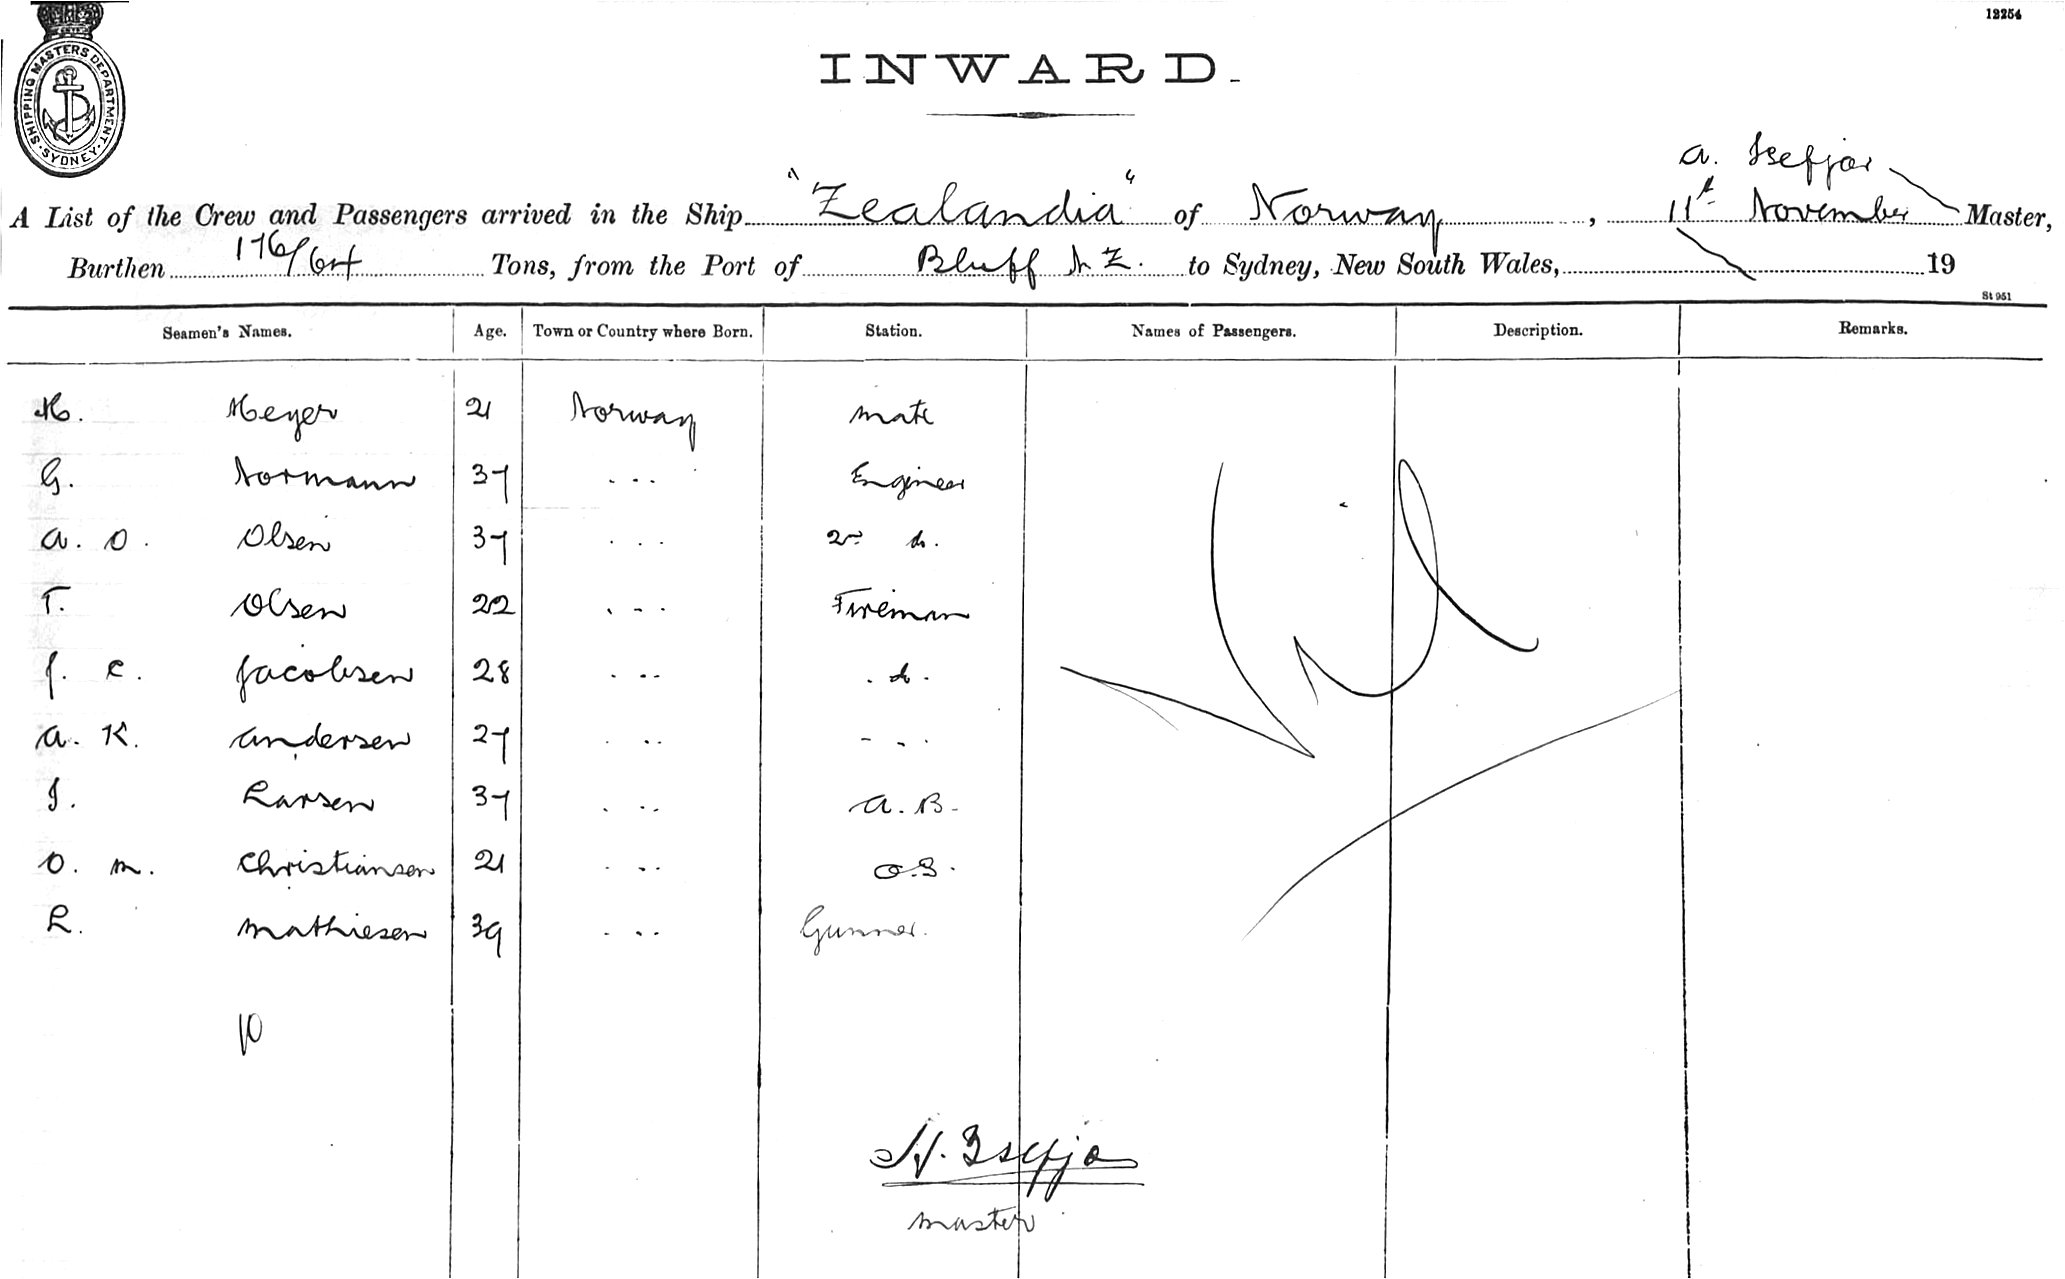 12254
SHIPPING MASTERS DEPARTMENT
SYDNEY
INWARD.
a. Isefjar
A List of the Crew and Passengers arrived in the Ship "Zealandia" of Norway, 11th November Master,
Burthen 176/64 Tons, from the Port of Bluff N Z. to Sydney, New South Wales, 19
St 951
Seamen's Names. Age. Town or Country where Born. Station. Names of Passengers. Description. Remarks.
H. Heyer 21 Norway mate
G. Normann 37 " Engineer
a. O. Olsen 37 " 2nd do.
T. Olsen 22 " Fireman
J. C. Jacobsen 28 " do.
a. K. andersen 27 " "
I. Larsen 37 " a. B.
O. m. Christiansen 21 " O.S.
L. mathiesen 39 " Gunner.
10
master